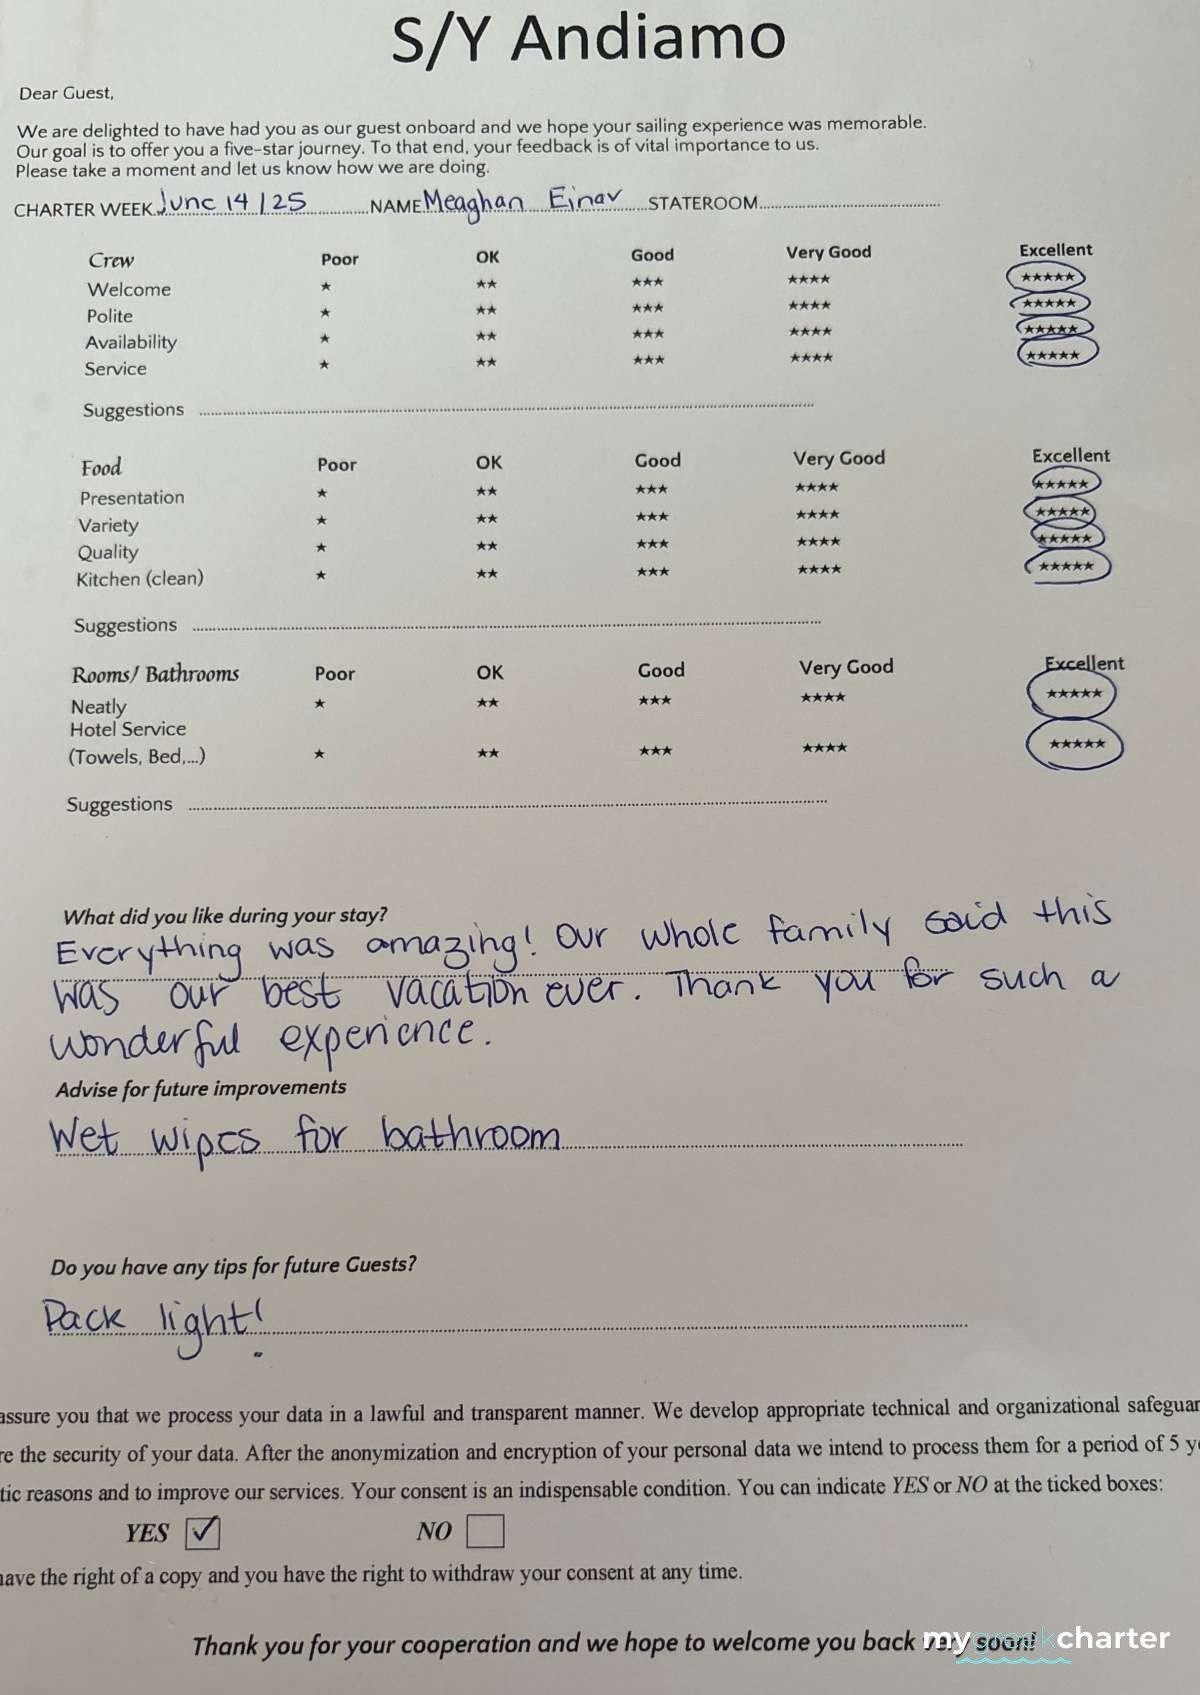 S/Y Andiamo
Dear Guest,
We are delighted to have had you as our guest onboard and we hope your sailing experience was memorable.
Our goal is to offer you a five-star journey. To that end, your feedback is of vital importance to us.
Please take a moment and let us know how we are doing.
CHARTER WEEK June 14/25 NAME Meaghan Einav STATEROOM
Crew Poor OK Good Very Good Excellent
Welcome ★ ★★ ★★★ ★★★★ ★★★★★
Polite ★ ★★ ★★★ ★★★★ ★★★★★
Availability ★ ★★ ★★★ ★★★★ ★★★★★
Service ★ ★★ ★★★ ★★★★ ★★★★★
Suggestions
Food Poor OK Good Very Good Excellent
Presentation ★ ★★ ★★★ ★★★★ ★★★★★
Variety ★ ★★ ★★★ ★★★★ ★★★★★
Quality ★ ★★ ★★★ ★★★★ ★★★★★
Kitchen (clean) ★ ★★ ★★★ ★★★★ ★★★★★
Suggestions
Rooms/ Bathrooms Poor OK Good Very Good Excellent
Neatly ★ ★★ ★★★ ★★★★ ★★★★★
Hotel Service
(Towels, Bed,...) ★ ★★ ★★★ ★★★★ ★★★★★
Suggestions
What did you like during your stay?
Everything was amazing! Our whole family said this
was our best vacation ever. Thank you for such a
wonderful experience.
Advise for future improvements
Wet wipes for bathroom
Do you have any tips for future Guests?
Pack light!
assure you that we process your data in a lawful and transparent manner. We develop appropriate technical and organizational safeguar
re the security of your data. After the anonymization and encryption of your personal data we intend to process them for a period of 5 y
tic reasons and to improve our services. Your consent is an indispensable condition. You can indicate YES or NO at the ticked boxes:
YES ✓ NO
have the right of a copy and you have the right to withdraw your consent at any time.
Thank you for your cooperation and we hope to welcome you back very soon!
mygreekcharter